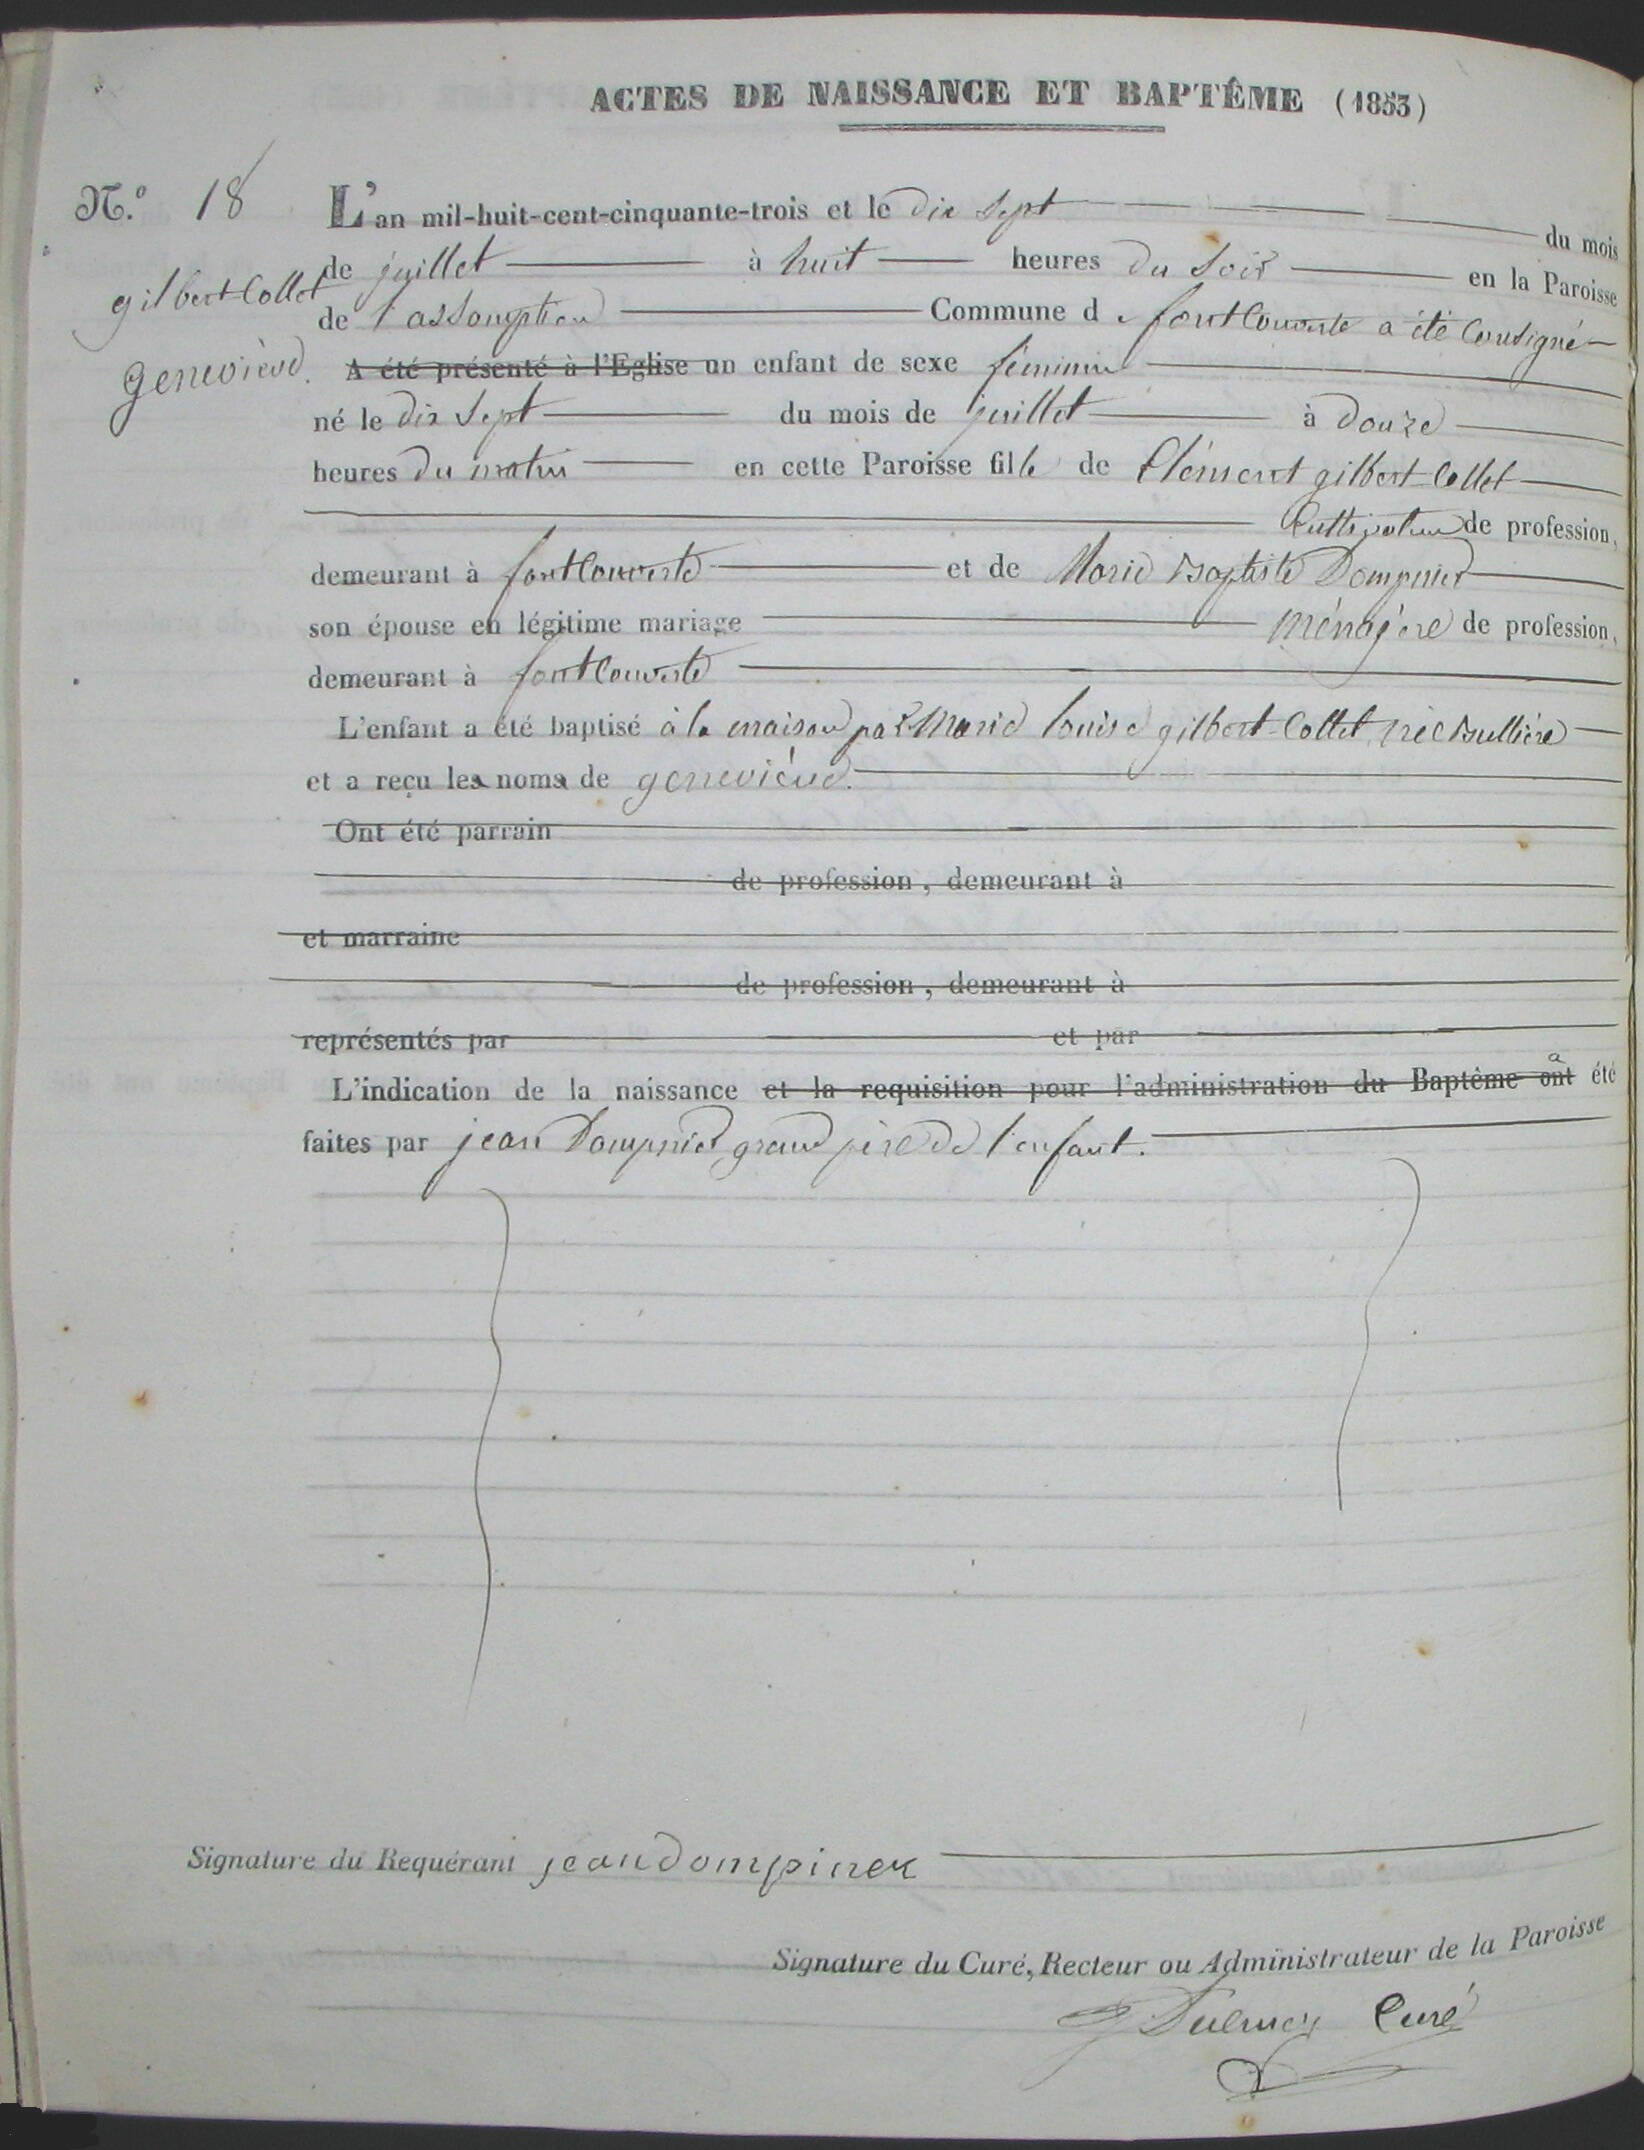 ACTES DE NAISSANCE ET BAPTÊME (1853)
N.o 18
gilbert-Collet
geneviève.
L'an mil-huit-cent-cinquante-trois et le dix sept du mois
de juillet à huit heures du soir en la Paroisse
de l'assomption Commune de fontcouverte a été consigné
A été présenté à l'Eglise un enfant de sexe féminin
né le dix sept du mois de juillet à douze
heures du matin en cette Paroisse fille de Clément gilbert-Collet
Cultivateur de profession,
demeurant à fontcouverte et de Marie Baptiste Dompnier
son épouse en légitime mariage ménagère de profession,
demeurant à fontcouverte
L'enfant a été baptisé à la maison par Marie louise gilbert-Collet née Bullière
et a reçu les noms de geneviève.
Ont été parrain
de profession, demeurant à
et marraine
de profession, demeurant à
représentés par et par
L'indication de la naissance et la requisition pour l'administration du Baptême ont a été
faites par jean Dompnier grand père de l'enfant.
Signature du Requérant jean dompiner
Signature du Curé, Recteur ou Administrateur de la Paroisse
Curé